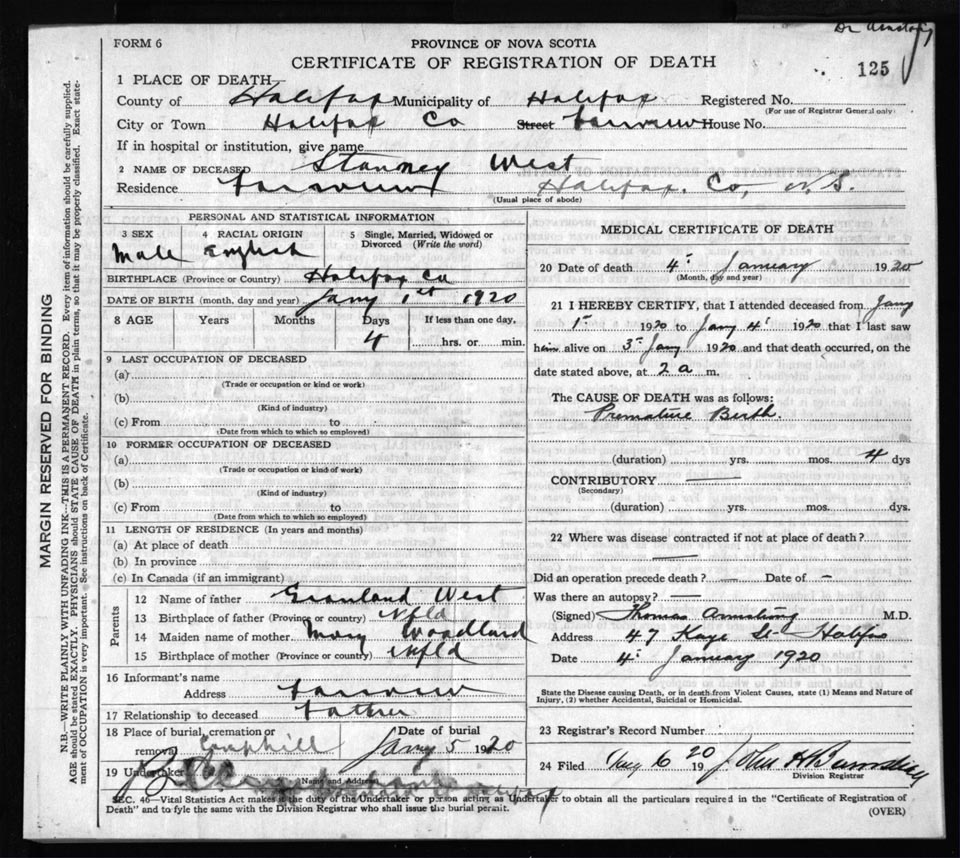 Dr
FORM 6
PROVINCE OF NOVA SCOTIA
CERTIFICATE OF REGISTRATION OF DEATH
125
1 PLACE OF DEATH
County of Halifax Municipality of Halifax Registered No.
(For use of Registrar General only)
City or Town Halifax Co Street Fairview House No.
If in hospital or institution, give name
2 NAME OF DECEASED Stanney West
Residence Fairview Halifax, Co, N.S.
(Usual place of abode)
PERSONAL AND STATISTICAL INFORMATION
3 SEX 4 RACIAL ORIGIN 5 Single, Married, Widowed or Divorced (Write the word)
Male English
BIRTHPLACE (Province or Country) Halifax Co
DATE OF BIRTH (month, day and year) Jany 1st 1920
8 AGE Years Months Days If less than one day,
4 hrs. or min.
9 LAST OCCUPATION OF DECEASED
(a)
(Trade or occupation or kind or work)
(b)
(Kind of industry)
(c) From to
(Date from which to which so employed)
10 FORMER OCCUPATION OF DECEASED
(a)
(Trade or occupation or kind of work)
(b)
(Kind of industry)
(c) From to
(Date from which to which so employed)
11 LENGTH OF RESIDENCE (In years and months)
(a) At place of death
(b) In province
(c) In Canada (if an immigrant)
Parents
12 Name of father West
13 Birthplace of father (Province or country) Nfld
14 Maiden name of mother Mary Woodland
15 Birthplace of mother (Province or country) Nfld
16 Informant's name
Address Fairview
17 Relationship to deceased Father
18 Place of burial, cremation or removal Camphill
Date of burial Jany 5 1920
19 Undertaker
Name and Address
Halifax
MEDICAL CERTIFICATE OF DEATH
20 Date of death 4th January 1920
(Month, day and year)
21 I HEREBY CERTIFY, that I attended deceased from Jany
1st 1920 to Jany 4th 1920 that I last saw
him alive on 3rd Jany 1920 and that death occurred, on the
date stated above, at 2 a m.
The CAUSE OF DEATH was as follows:
Premature Birth.
(duration) yrs. mos. 4 dys
CONTRIBUTORY
(Secondary)
(duration) yrs. mos. dys.
22 Where was disease contracted if not at place of death?
Did an operation precede death? — Date of –
Was there an autopsy? —
(Signed) Thomas Armstrong M.D.
Address 47 Kaye St Halifax
Date 4th January 1920
State the Disease causing Death, or in death from Violent Causes, state (1) Means and Nature of
Injury, (2) whether Accidental, Suicidal or Homicidal.
23 Registrar's Record Number
24 Filed Aug 6 1920 John H
Division Registrar
SEC. 46—Vital Statistics Act makes it the duty of the Undertaker or person acting as Undertaker to obtain all the particulars required in the "Certificate of Registration of
Death" and to fyle the same with the Division Registrar who shall issue the burial permit.
(OVER)
MARGIN RESERVED FOR BINDING
N.B.—WRITE PLAINLY WITH UNFADING INK—THIS IS A PERMANENT RECORD. Every item of information should be carefully supplied.
AGE should be stated EXACTLY. PHYSICIANS should STATE CAUSE OF DEATH in plain terms, so that it may be properly classified. Exact state-
ment of OCCUPATION is very important. See instructions on back of Certificate.